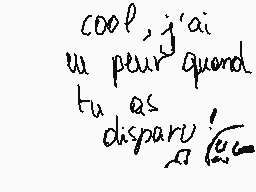 cool, j'ai
eu peur quand
tu as
disparu !